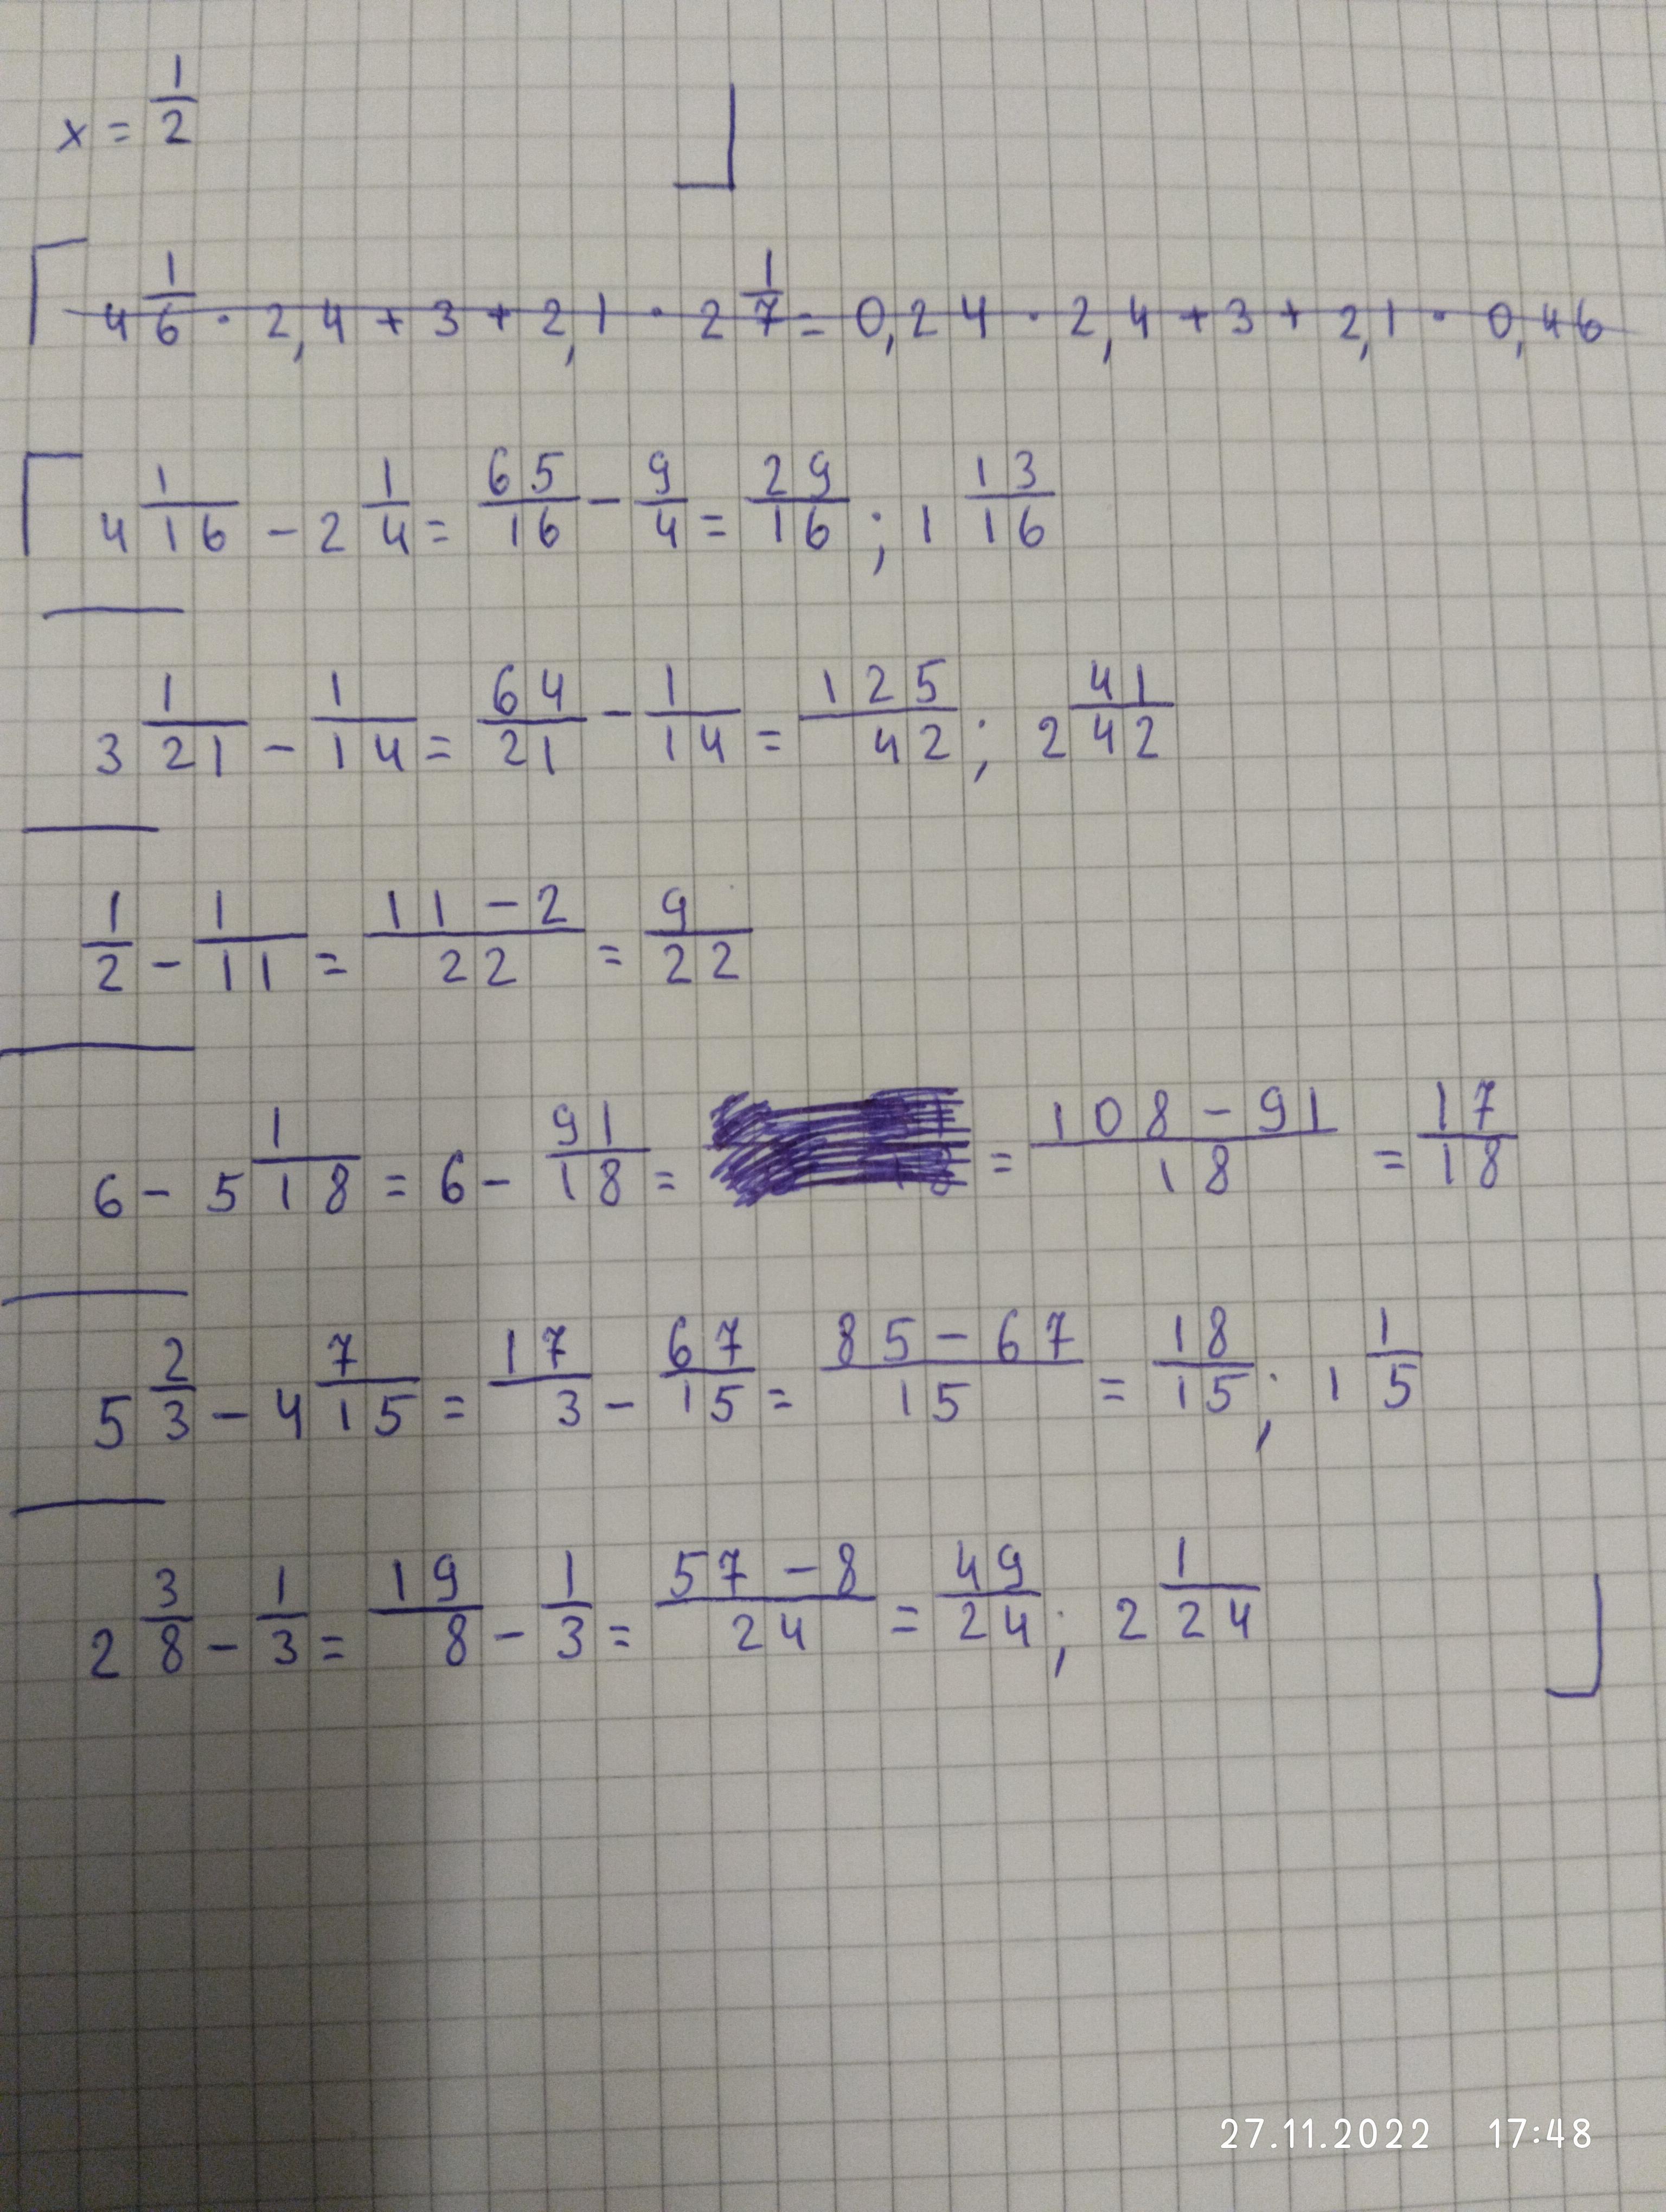 x = 1/2
4 1/6 · 2,4 + 3 + 2,1 · 2 1/7 = 0,24 · 2,4 + 3 + 2,1 · 0,46
4 1/16 - 2 1/4 = 65/16 - 9/4 = 29/16 ; 1 13/16
3 1/21 - 1/14 = 64/21 - 1/14 = 125/42 ; 2 41/42
1/2 - 1/11 = (11 - 2)/22 = 9/22
6 - 5 1/18 = 6 - 91/18 = = (108 - 91)/18 = 17/18
5 2/3 - 4 7/15 = 17/3 - 67/15 = (85 - 67)/15 = 18/15 ; 1 1/5
2 3/8 - 1/3 = 19/8 - 1/3 = (57 - 8)/24 = 49/24 ; 2 1/24
27.11.2022 17:48